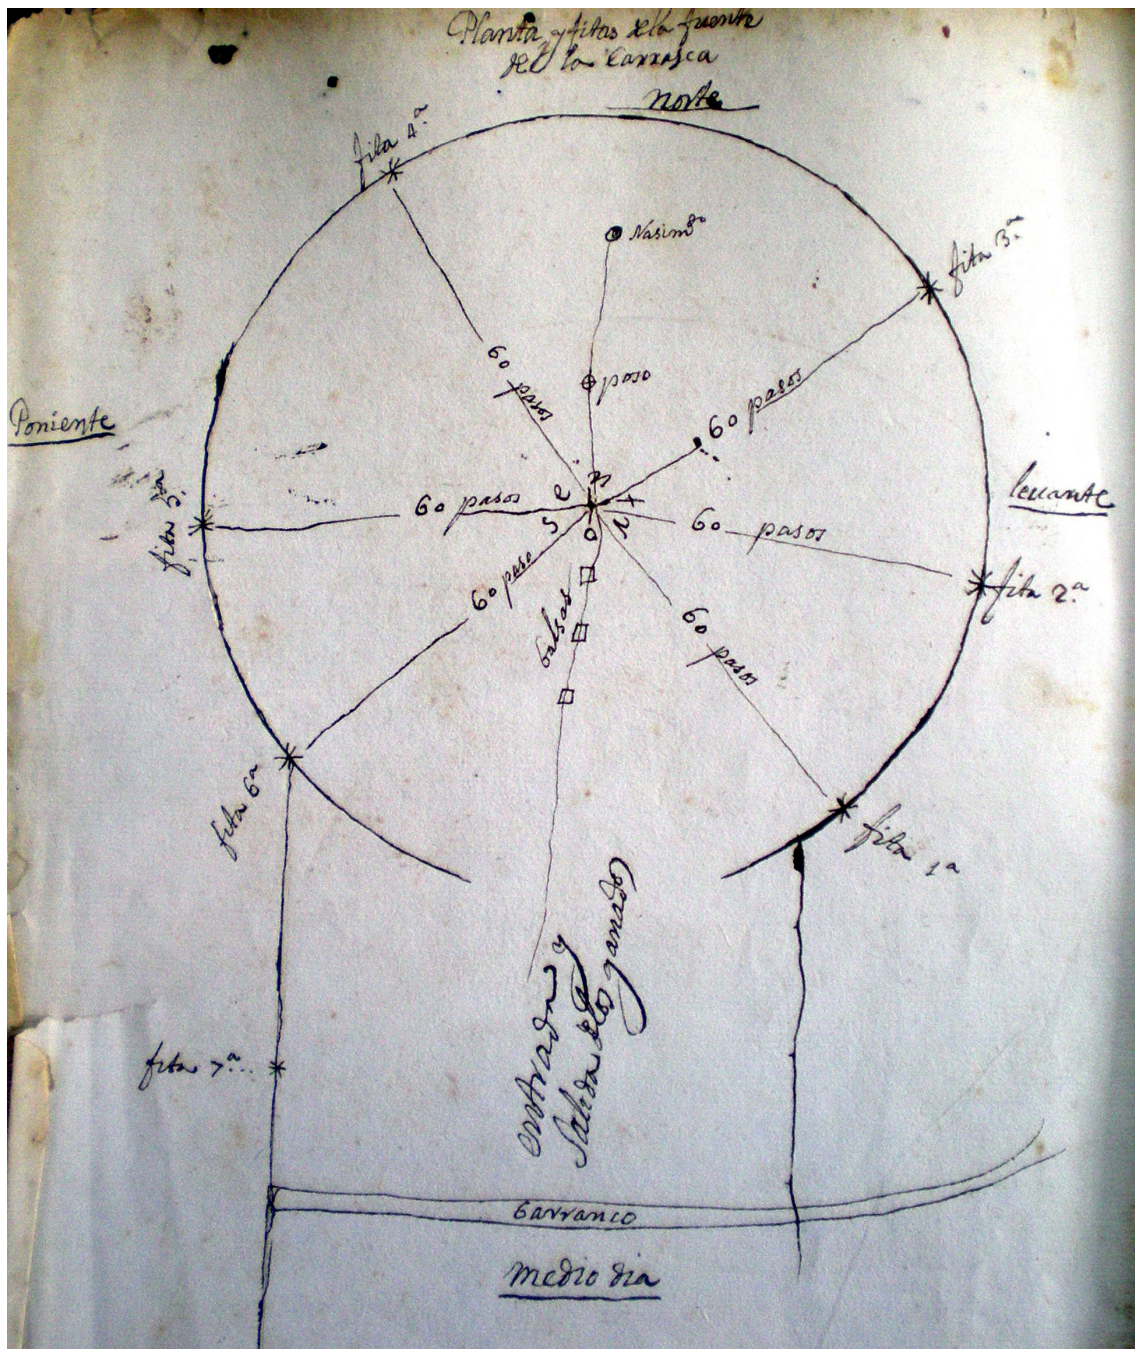 Planta y fitas de la fuente
de la Carrasca
Norte
fita 4ª
Nasimto
fita 3ª
60 pasos
poso
60 pasos
Poniente
levante
fita 5ª
60 pasos
60 pasos
fita 2ª
60 paso
balsas
60 pasos
fita 6ª
fita 1ª
entrada y
Salida de los ganados
fita 7ª
barranco
medio dia